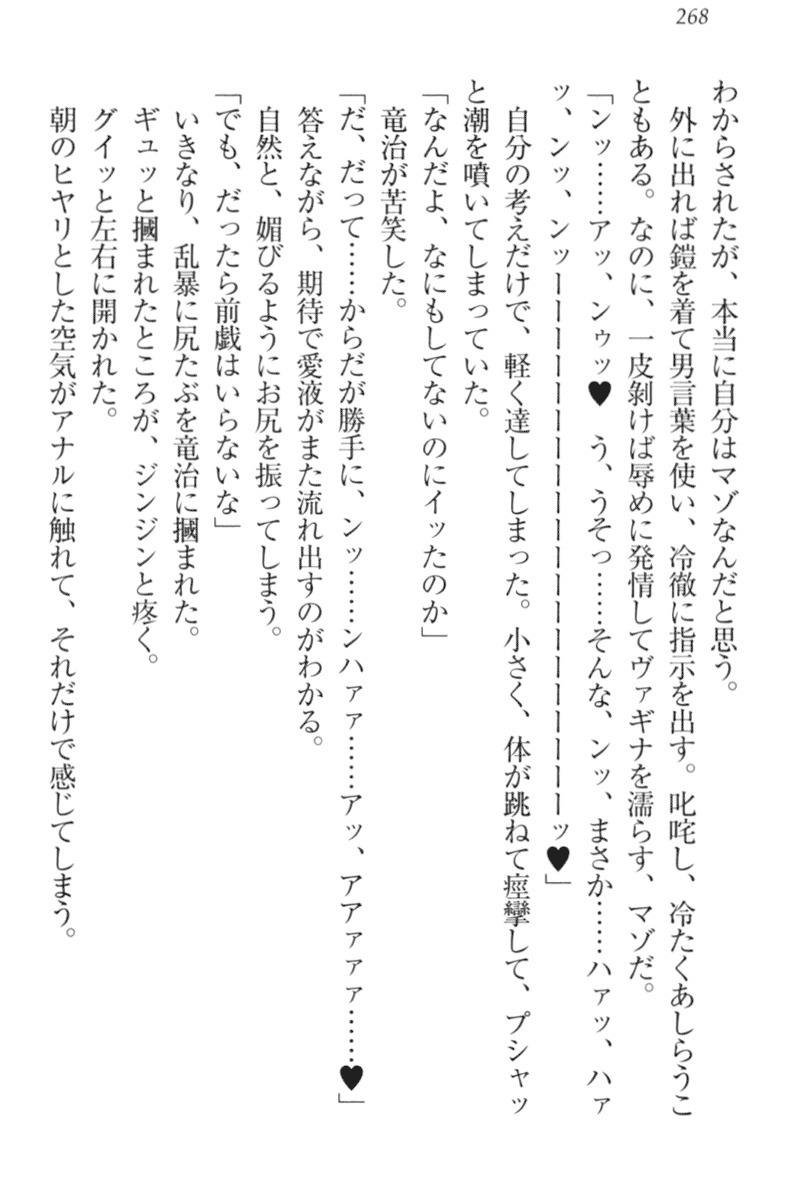 268
わからされたが、本当に自分はマゾなんだと思う。
　外に出れば鎧を着て男言葉を使い、冷徹に指示を出す。叱咤し、冷たくあしらうこ
ともある。なのに、一皮剝けば辱めに発情してヴァギナを濡らす、マゾだ。
「ンッ……アッ、ンゥッ♥　う、うそっ……そんな、ンッ、まさか……ハァッ、ハァ
ッ、ンッ、ンッーーーーーーーーーーーーーーーーーーーッ♥」
　自分の考えだけで、軽く達してしまった。小さく、体が跳ねて痙攣して、プシャッ
と潮を噴いてしまっていた。
「なんだよ、なにもしてないのにイッたのか」
　竜治が苦笑した。
「だ、だって……からだが勝手に、ンッ……ンハァァ……アッ、アアァァァ……♥」
　答えながら、期待で愛液がまた流れ出すのがわかる。
　自然と、媚びるようにお尻を振ってしまう。
「でも、だったら前戯はいらないな」
　いきなり、乱暴に尻たぶを竜治に摑まれた。
　ギュッと摑まれたところが、ジンジンと疼く。
　グイッと左右に開かれた。
　朝のヒヤリとした空気がアナルに触れて、それだけで感じてしまう。